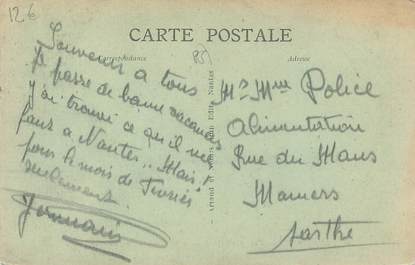 12€
CARTE POSTALE
Correspondance
Adresse
Souvenir à tous
Je passe de bonne vacances
J'ai trouvé ce qu'il me
faut à Nantes... Mais!
pour le mois de Février
seulement.
Mr Mme Police
Alimentation
Rue du Mans
Mamers
Sarthe